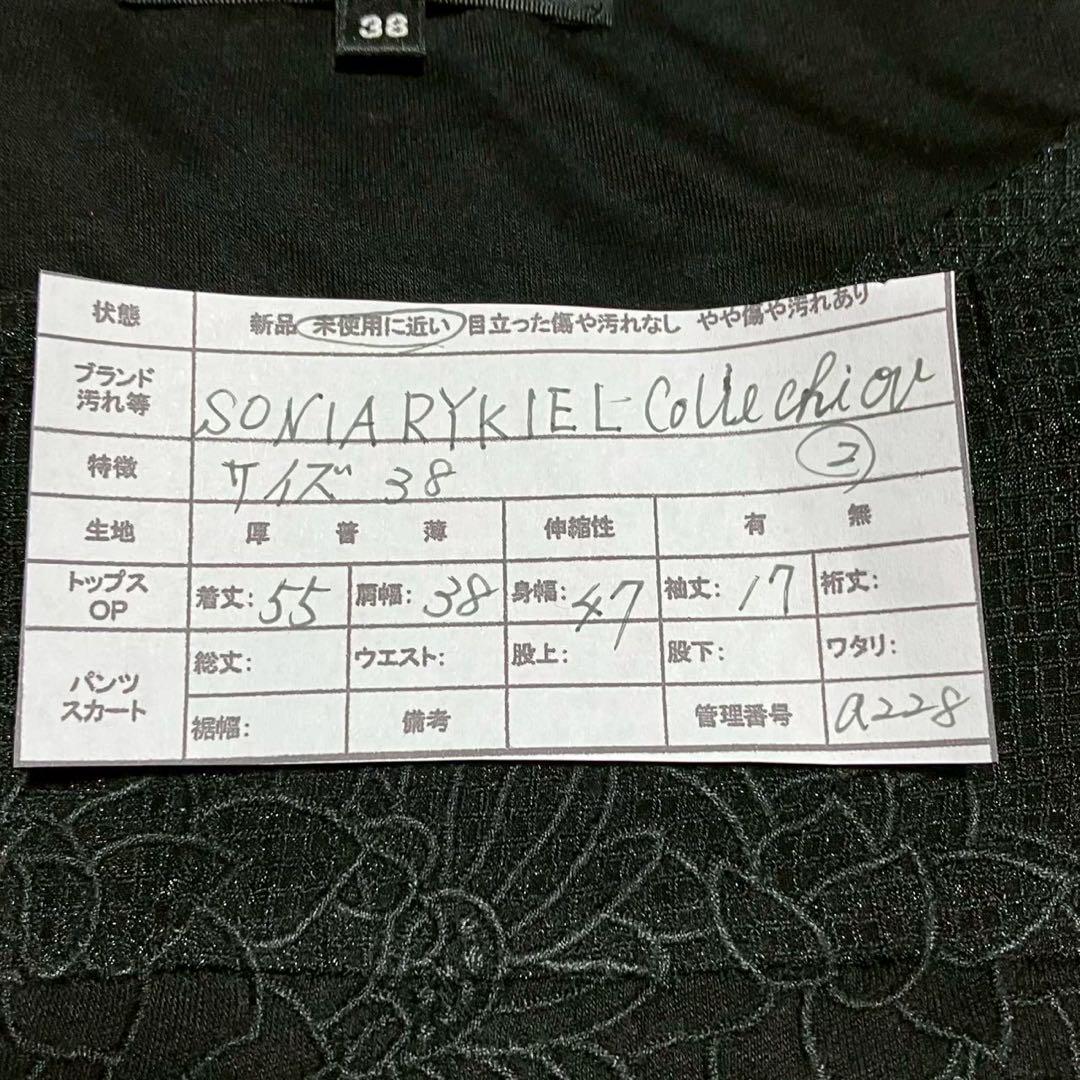 38
状態 新品 未使用に近い 目立った傷や汚れなし やや傷や汚れあり
ブランド
汚れ等 SONIA RYKIEL Collection
特徴 サイズ 38 2
生地 厚 普 薄 伸縮性 有 無
トップス
OP 着丈: 55 肩幅: 38 身幅: 47 袖丈: 17 裄丈:
パンツ
スカート 総丈: ウエスト: 股上: 股下: ワタリ:
裾幅: 備考 管理番号 a228